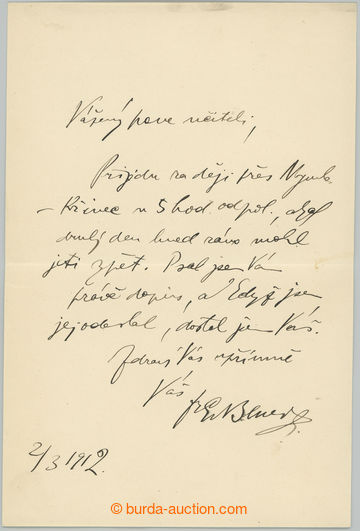 Vážený pane učiteli,
Přijdu raději přes Nymb.
– Křinec v 5 hod. odpol., abych
druhý den hned ráno mohl
jeti zpět. Psal jsem Vám
právě dopis, a když jsem
jej odeslal, dostal jsem Váš.
Zdraví Vás upřímně
Váš
2/3 1912.
© burda-auction.com